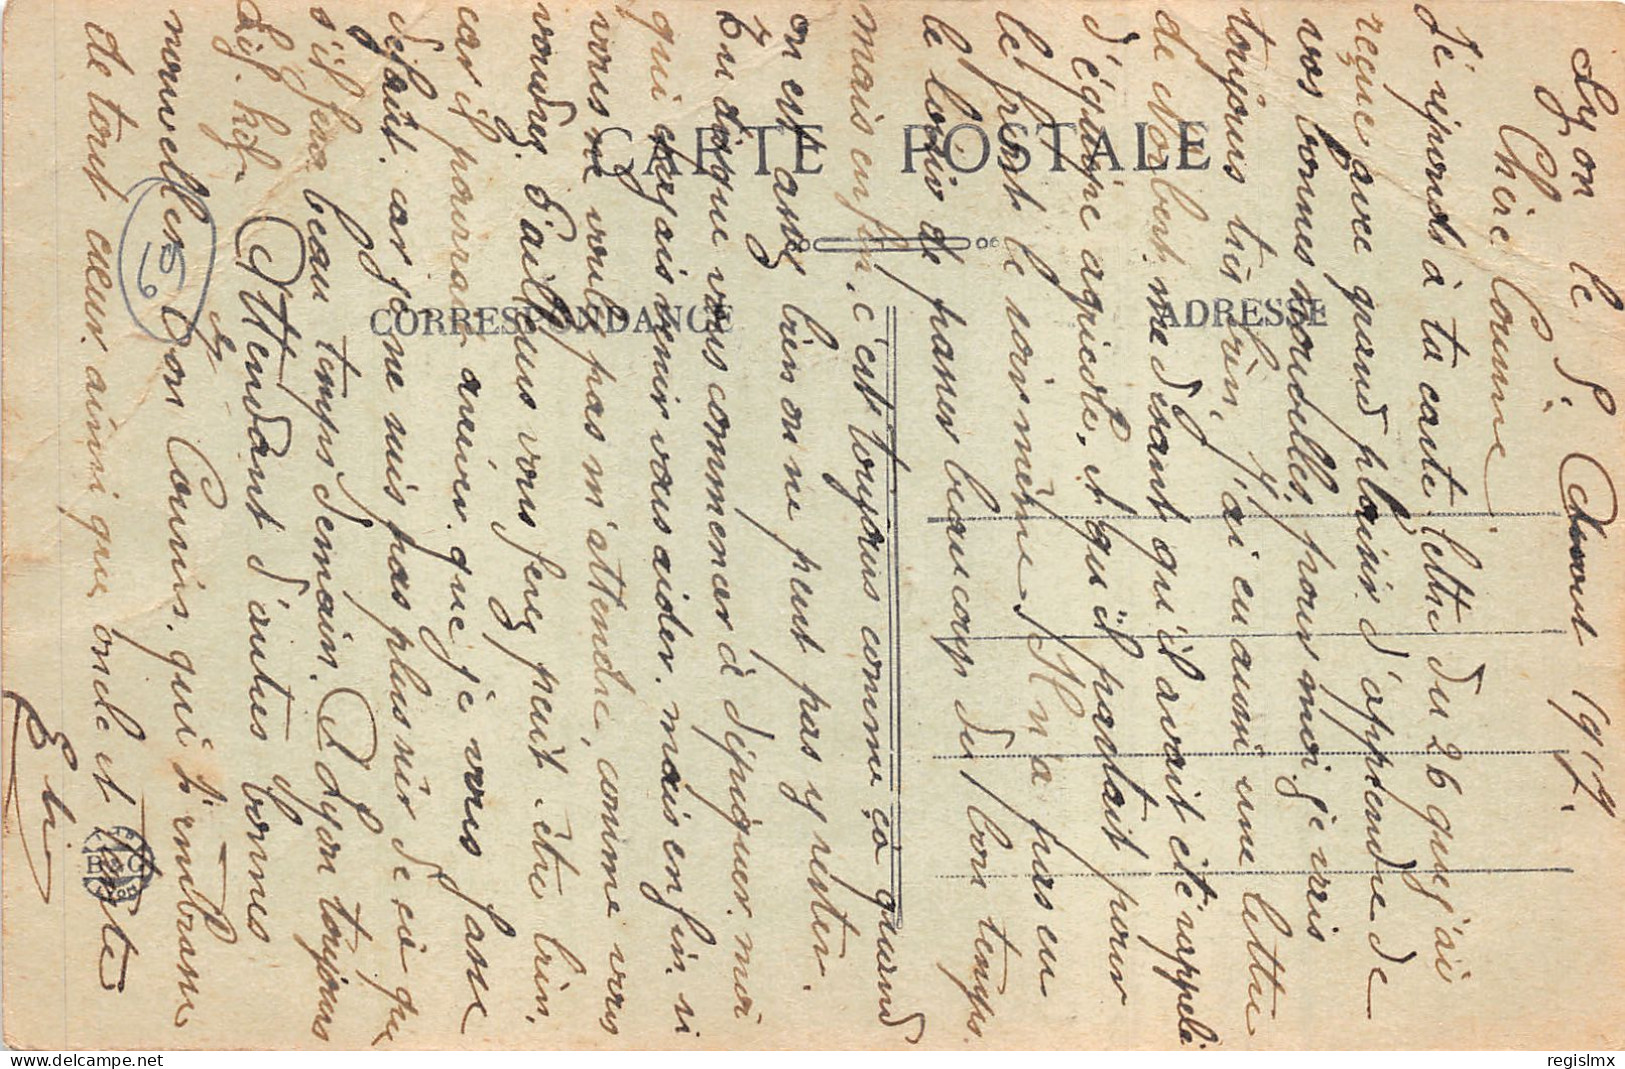 Lyon le 5. Aout 1917.
Chère Cousine
Je réponds à ta carte-lettre du 26 que j'ai
reçue avec grand plaisir d'apprendre de
vos bonnes nouvelles, pour moi je vais
toujours très bien, j'ai eu aussi une lettre
de Norbert me disant qu'il avait été rappelé
d'équipe agricole, et qu'il partait pour
le front le soir même. Il n'a pas eu
le loisir de passer beaucoup du bon temps.
mais enfin, c'est toujours comme ça quand
on est assez bien on ne peut pas y rester.
Tu dis que vous commencer à dépiquer. moi
qui croyais venir vous aider. mais enfin. si
vous ne voulez pas m'attendre, comme vous
voudrez. D'ailleurs vous ferez peut-être bien,
car il pourrait arriver que je vous fasse
défaut. car je ne suis pas plus sûr de ça que
s'il fera beau temps demain. A Lyon toujours
kif-kif.
Attendant d'autres bonnes
nouvelles ton Cousin. qui t'embrasse
de tout cœur. ainsi que oncle et tante
CARTE POSTALE
CORRESPONDANCE
ADRESSE
regislmx